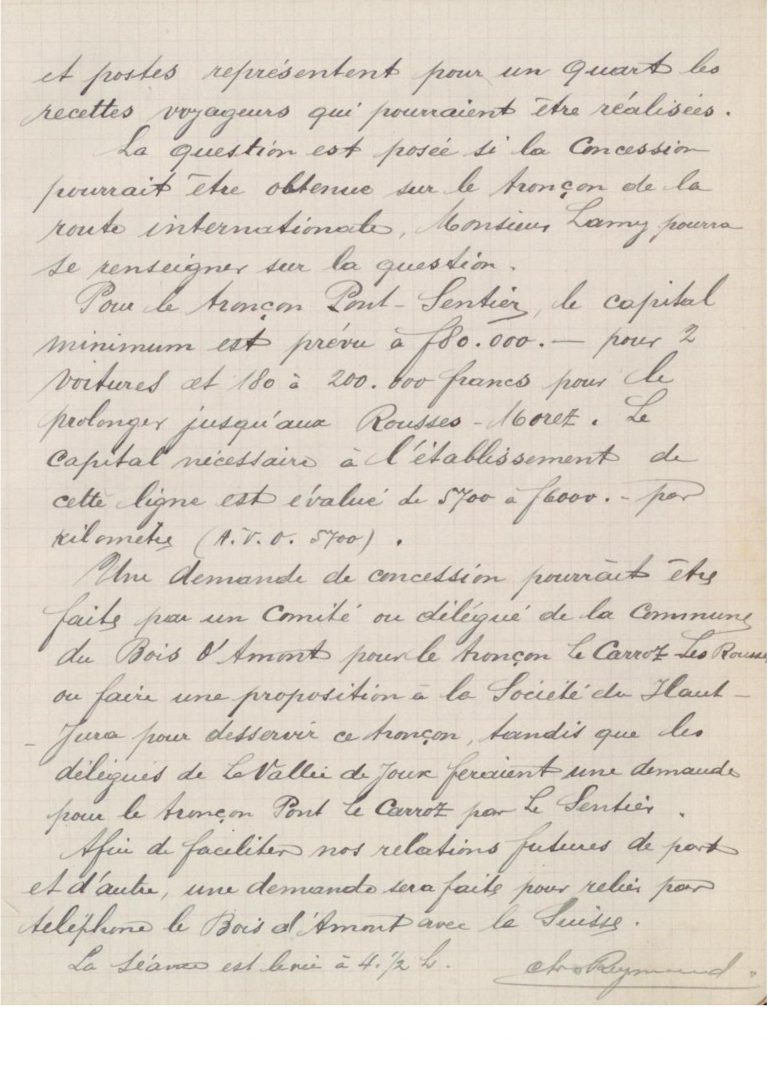 et postes représentent pour un quart les
recettes voyageurs qui pourraient être réalisées.
La question est posée si la Concession
pourrait être obtenue sur le tronçon de la
route internationale, Monsieur Lamy pourra
se renseigner sur la question.
Pour le tronçon Pont-Sentier, le capital
minimum est prévu à f80.000.- pour 2
voitures et 180 à 200.000 francs pour le
prolonger jusqu'aux Rousses-Morez. Le
capital nécessaire à l'établissement de
cette ligne est évalué de 5700 à f6000.- par
kilomètre (A.V.O. 5700).
Une demande de concession pourrait être
faite par un Comité ou délégué de la Commune
du Bois d'Amont pour le tronçon Le Carroz-Les Rousses
ou faire une proposition à la Société du Haut-
-Jura pour desservir ce tronçon, tandis que les
délégués de La Vallée de Joux feraient une demande
pour le tronçon Pont Le Carroz par Le Sentier.
Afin de faciliter nos relations futures de part
et d'autre, une demande sera faite pour relier par
téléphone le Bois d'Amont avec la Suisse.
La séance est levée à 4.1/2 h. Reymond.